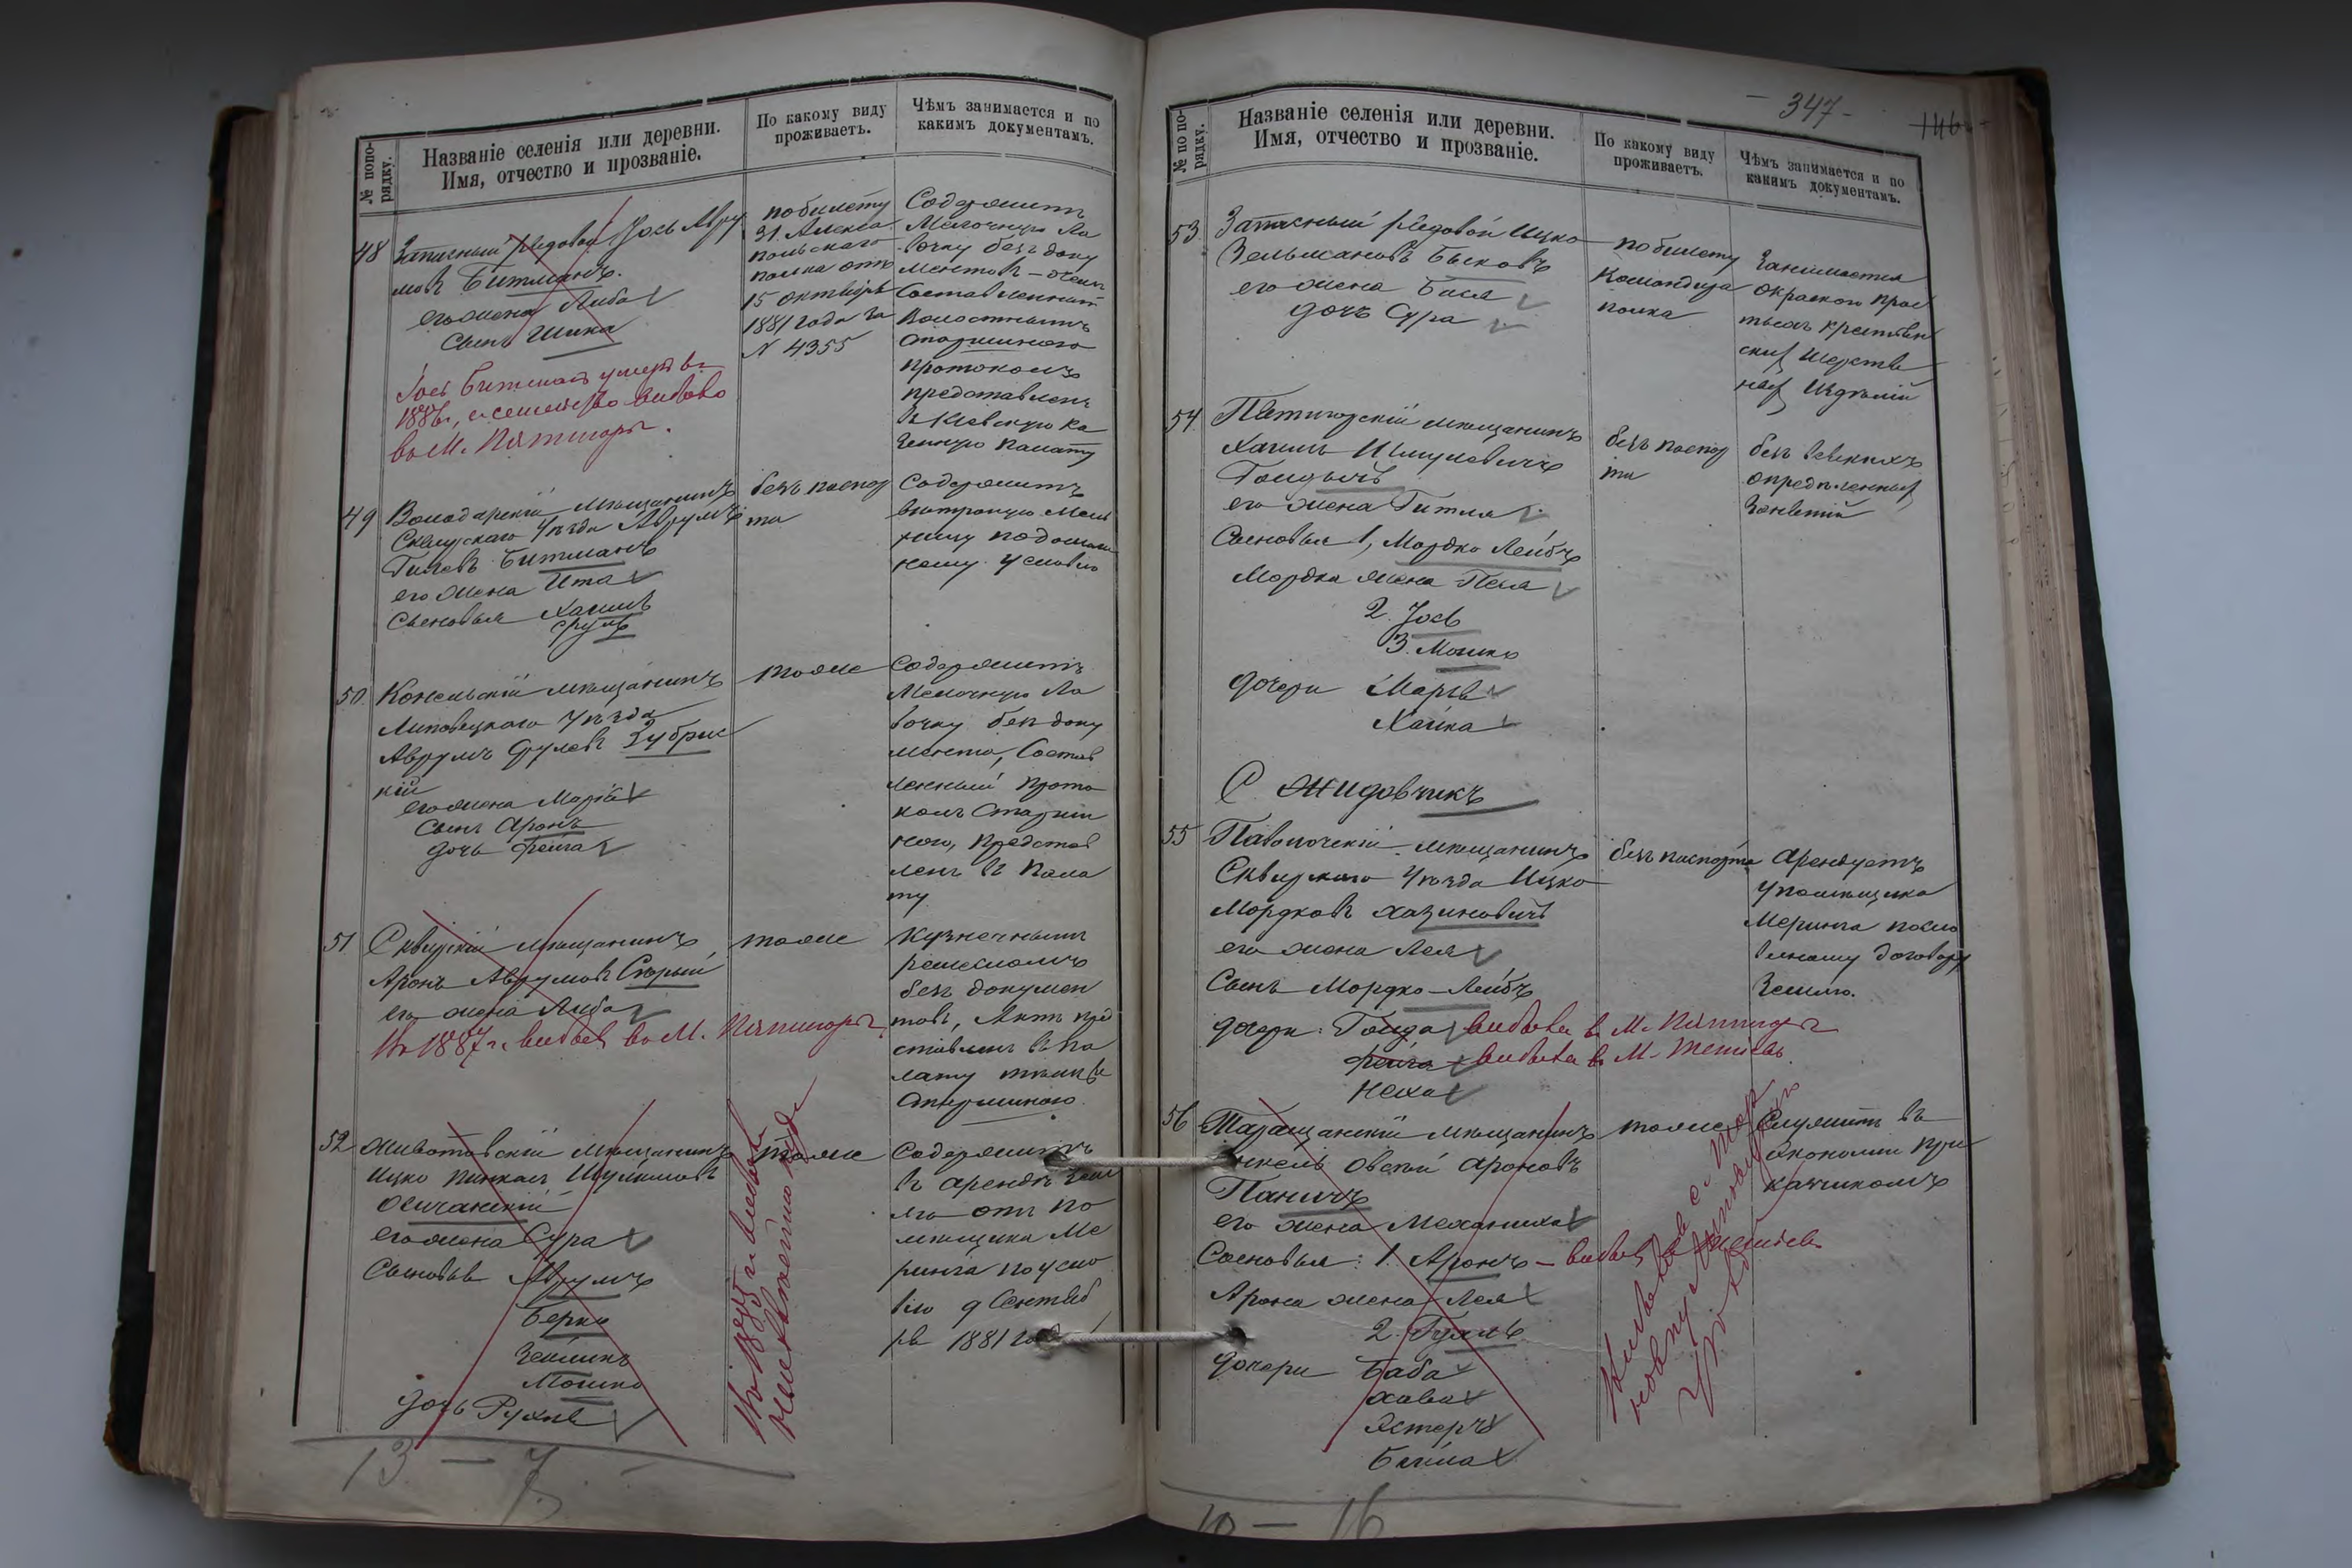 № попо-
рядку.
Названіе селенія или деревни.
Имя, отчество и прозваніе.
По какому виду
проживаетъ.
Чѣмъ занимается и по
какимъ документамъ.
48
Запасный рядовой Іось Авру
мовъ Битманъ.
его жена Либа
сынъ Шика
Іось Битманъ умеръ въ
1886г., а семейство выбыло
въ М. Пятигоры.
по билету
31 Алекса
польскаго
полка отъ
15 октября
1881 года за
N 4355
Содержитъ
Мелочную Ла
вочку безъ доку
ментовъ – о чемъ
составленный
Волостнымъ
старшиною
протоколъ
представленъ
въ Кіевскую Ка
зенную Палату
49
Володарскій мѣщанинъ
Сквирскаго уѣзда Аврумъ
Битманъ
его жена Ита
Сыновья Хаимъ
Сруль
безъ паспор
та
Содержитъ
вѣтряную мель
ницу по домаш
нему условію
50
Конельскій мѣщанинъ
Липовецкаго уѣзда
Аврумъ Срулевъ Зубрис
кій
его жена Марія
сынъ Аронъ
дочь Фейга
тоже
Содержитъ
Мелочную Ла
вочку безъ доку
мента, Состав
ленный прото
колъ Старши
ною, представ
ленъ въ Пала
ту
51
Сквирскій мѣщанинъ
Аронъ Аврумовъ Старый
его жена Либа
Въ 1887г. выбылъ въ М. Пятигоры
тоже
Кузнечнымъ
ремесломъ
безъ докумен
товъ, Актъ пред
ставленъ въ Па
лату тѣмъ же
Старшиною
52
Животовскій мѣщанинъ
Ицко Пинкасъ Шулимовъ
Осичанскій
его жена Сура
Сыновья Аврумъ
Берко
Зейликъ
Мошко
дочь Рухля
тоже
Содержитъ
въ арендѣ зем
лю отъ по
мѣщика Ме
ринга по усло
вію 9 Сентяб
ря 1881 года
13 – 7
– 347 –
146
№ по по-
рядку.
Названіе селенія или деревни.
Имя, отчество и прозваніе.
По какому виду
проживаетъ.
Чѣмъ занимается и по
какимъ документамъ.
53
Запасный рядовой Ицко
Зельмановъ Быковъ
его жена Бася
дочь Сура
по билету
Командира
полка
Занимается
окраскою прос
тыхъ крестьян
скихъ шерстя
ныхъ издѣлій
54
Пятигорскій мѣщанинъ
Хаимъ Шмулевичъ
его жена Гитля
Сыновья 1, Мордко Лейбъ
Мордка жена Песя
2. Іось
3. Мошко
дочери Марья
Хайка
безъ паспор
та
безъ всякихъ
опредѣленныхъ
Занятій
С. Жидовчикъ
55
Паволочскій мѣщанинъ
Сквирскаго уѣзда Ицко
Мордковъ Хазиновичъ
его жена Лея
Сынъ Мордко-Лейбъ
дочери: Голда выбыла въ М. Пятигоры
Фейга – выбыла въ М. Тетіевъ.
Неха
безъ паспорта
Арендуетъ
у помѣщика
Меринга по сло
весному договору
Землю.
56
Таращанскій мѣщанинъ
Янкель Овсѣй Ароновъ
Паничъ
его жена
Сыновья: 1. Аронъ – выбылъ въ Тетіевъ
Арона жена Лея
2. Гузль
дочери Баба
Хава
Эстеръ
Бейла
тоже
Служитъ въ
Экономіи при
кащикомъ
10 – 16